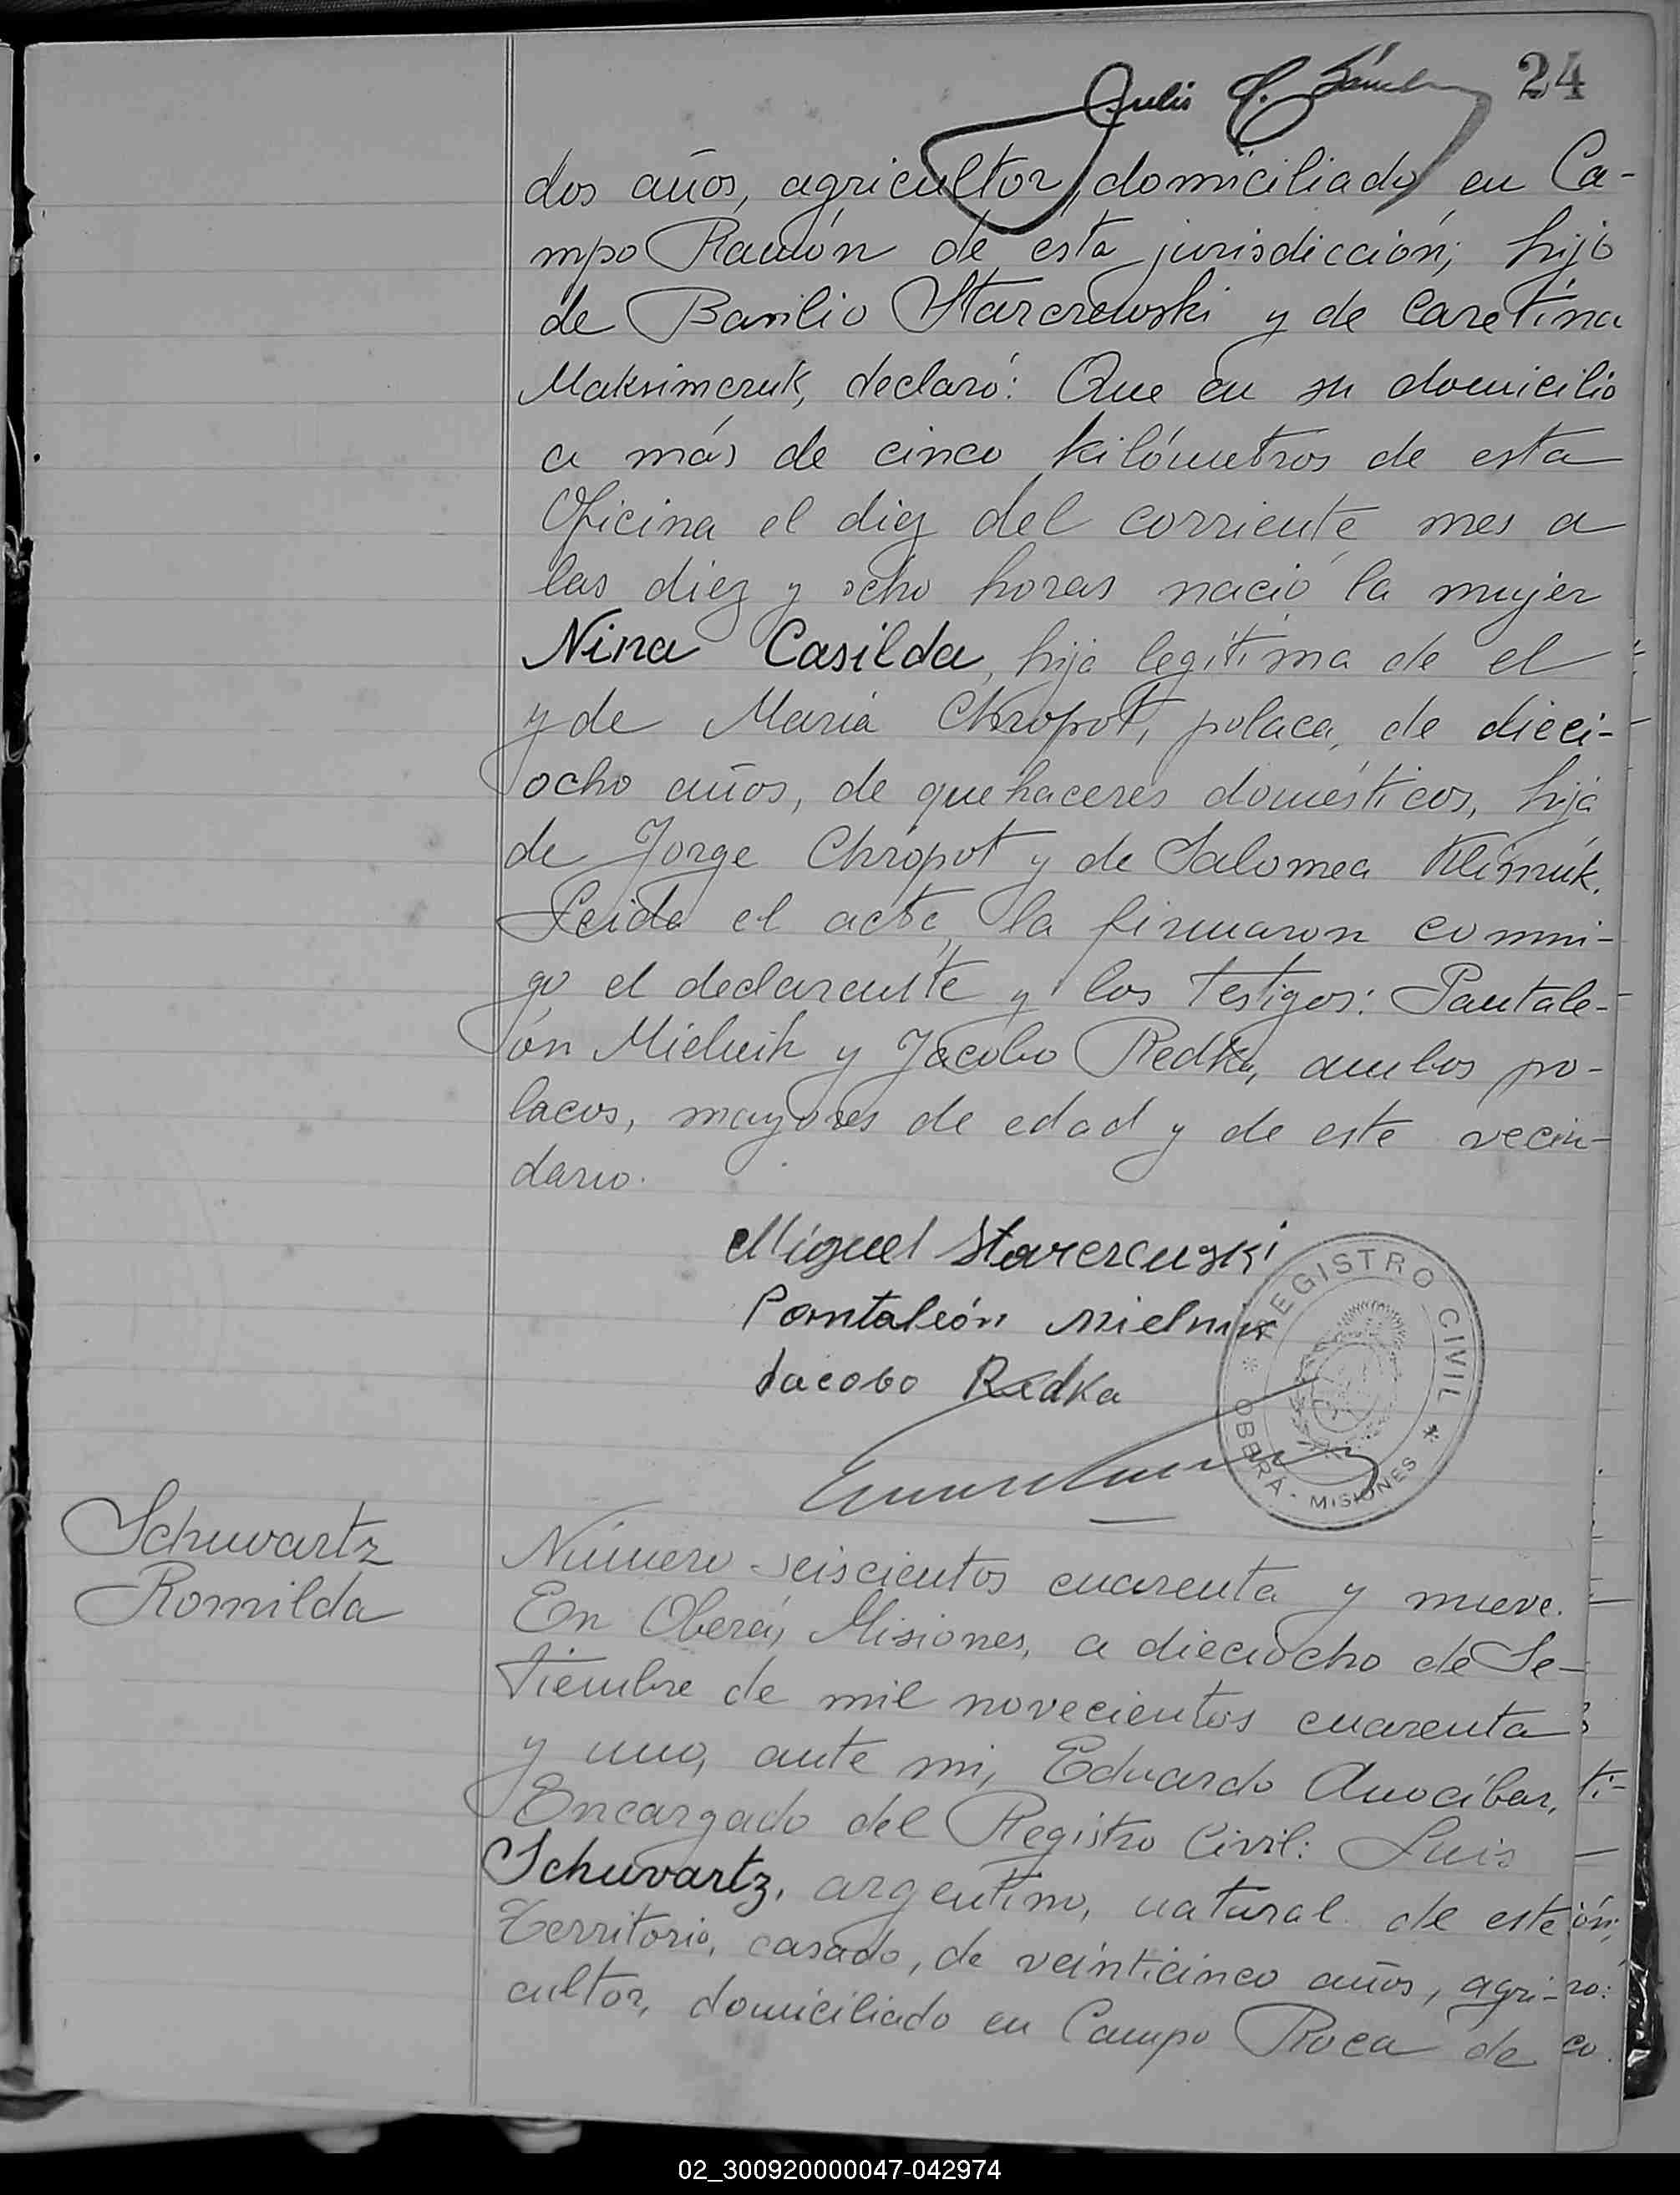 24
dos años, agricultor, domiciliado en Ca-
mpo Ramón de esta jurisdicción; hijo
de Basilio Starczewski y de Caretina
Maksimczuk, declaró: Que en su domicilio
a más de cinco kilómetros de esta
Oficina el diez del corriente mes a
las diez y ocho horas nació la mujer
Nina Casilda, hija legítima de el
y de María Chropot, polaca, de dieci-
ocho años, de quehaceres domésticos, hija
de Jorge Chropot y de Salomea Klimuk.
Leida el acta, la firmaron conmi-
go el declarante y los testigos: Pantale-
ón Mielnik y Jacobo Redka, ambos po-
lacos, mayores de edad y de este vecin-
dario.
Miguel Starczewski
Pantaleón Mielnik
Jacobo Redka
REGISTRO CIVIL * OBERÁ - MISIONES *
Schuvartz
Romilda
Número seiscientos cuarenta y nueve.
En Oberá, Misiones, a dieciocho de Se-
tiembre de mil novecientos cuarenta
y uno, ante mi, Eduardo Anocíbar,
Encargado del Registro Civil: Luis
Schuvartz, argentino, natural de este
Territorio, casado, de veinticinco años, agri-
cultor, domiciliado en Campo Roca de
02_300920000047-042974